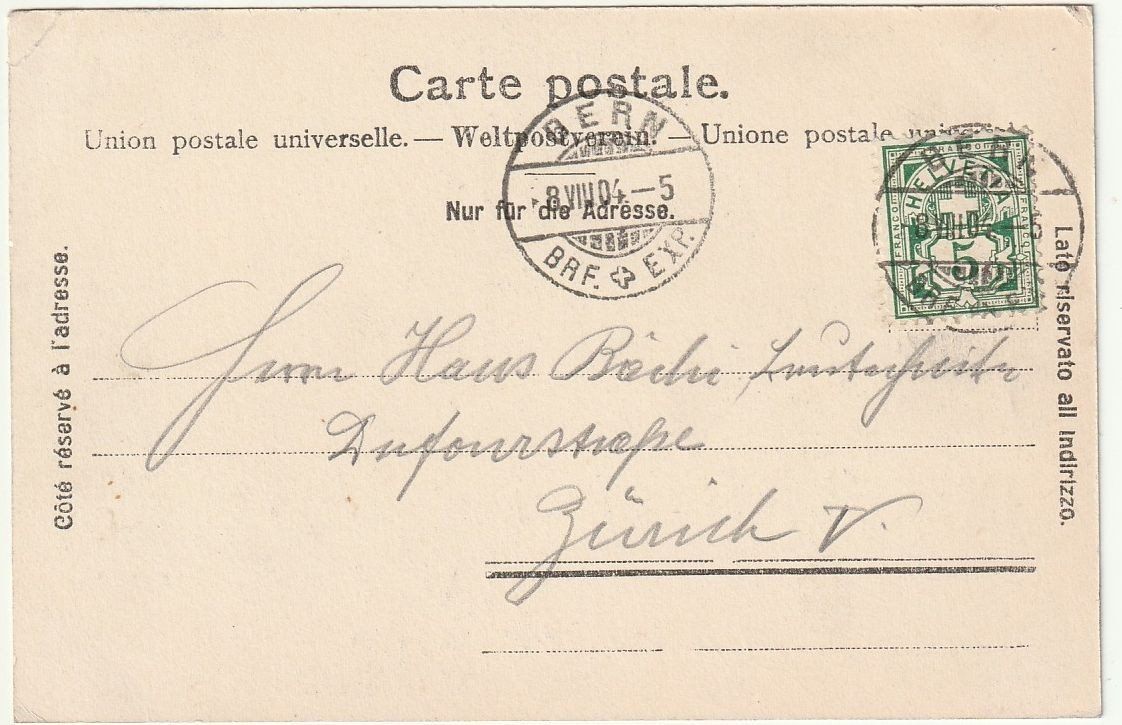 Carte postale.
Union postale universelle. — Weltpostverein. — Unione postale universale
Nur für die Adresse.
BERN
8.VIII.04.–5
BRF. EXP.
BERN
8.VIII.04.–5
HELVETIA
FRANCO
FRANCO
FRANCO
5
Côté réservé à l'adresse.
Lato riservato all Indirizzo.
Herrn Hans Bächi
Dufourstraße
Zürich V.